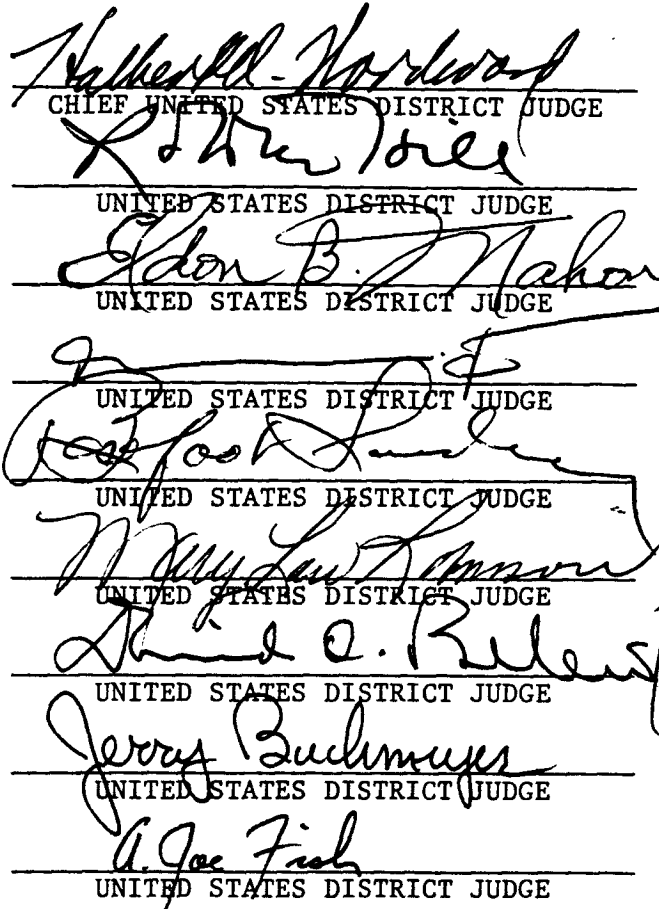 Halbert O. Woodward
CHIEF UNITED STATES DISTRICT JUDGE
UNITED STATES DISTRICT JUDGE
Eldon B. Mahon
UNITED STATES DISTRICT JUDGE
UNITED STATES DISTRICT JUDGE
UNITED STATES DISTRICT JUDGE
Mary Lou Robinson
UNITED STATES DISTRICT JUDGE
UNITED STATES DISTRICT JUDGE
Jerry Buchmeyer
UNITED STATES DISTRICT JUDGE
A. Joe Fish
UNITED STATES DISTRICT JUDGE